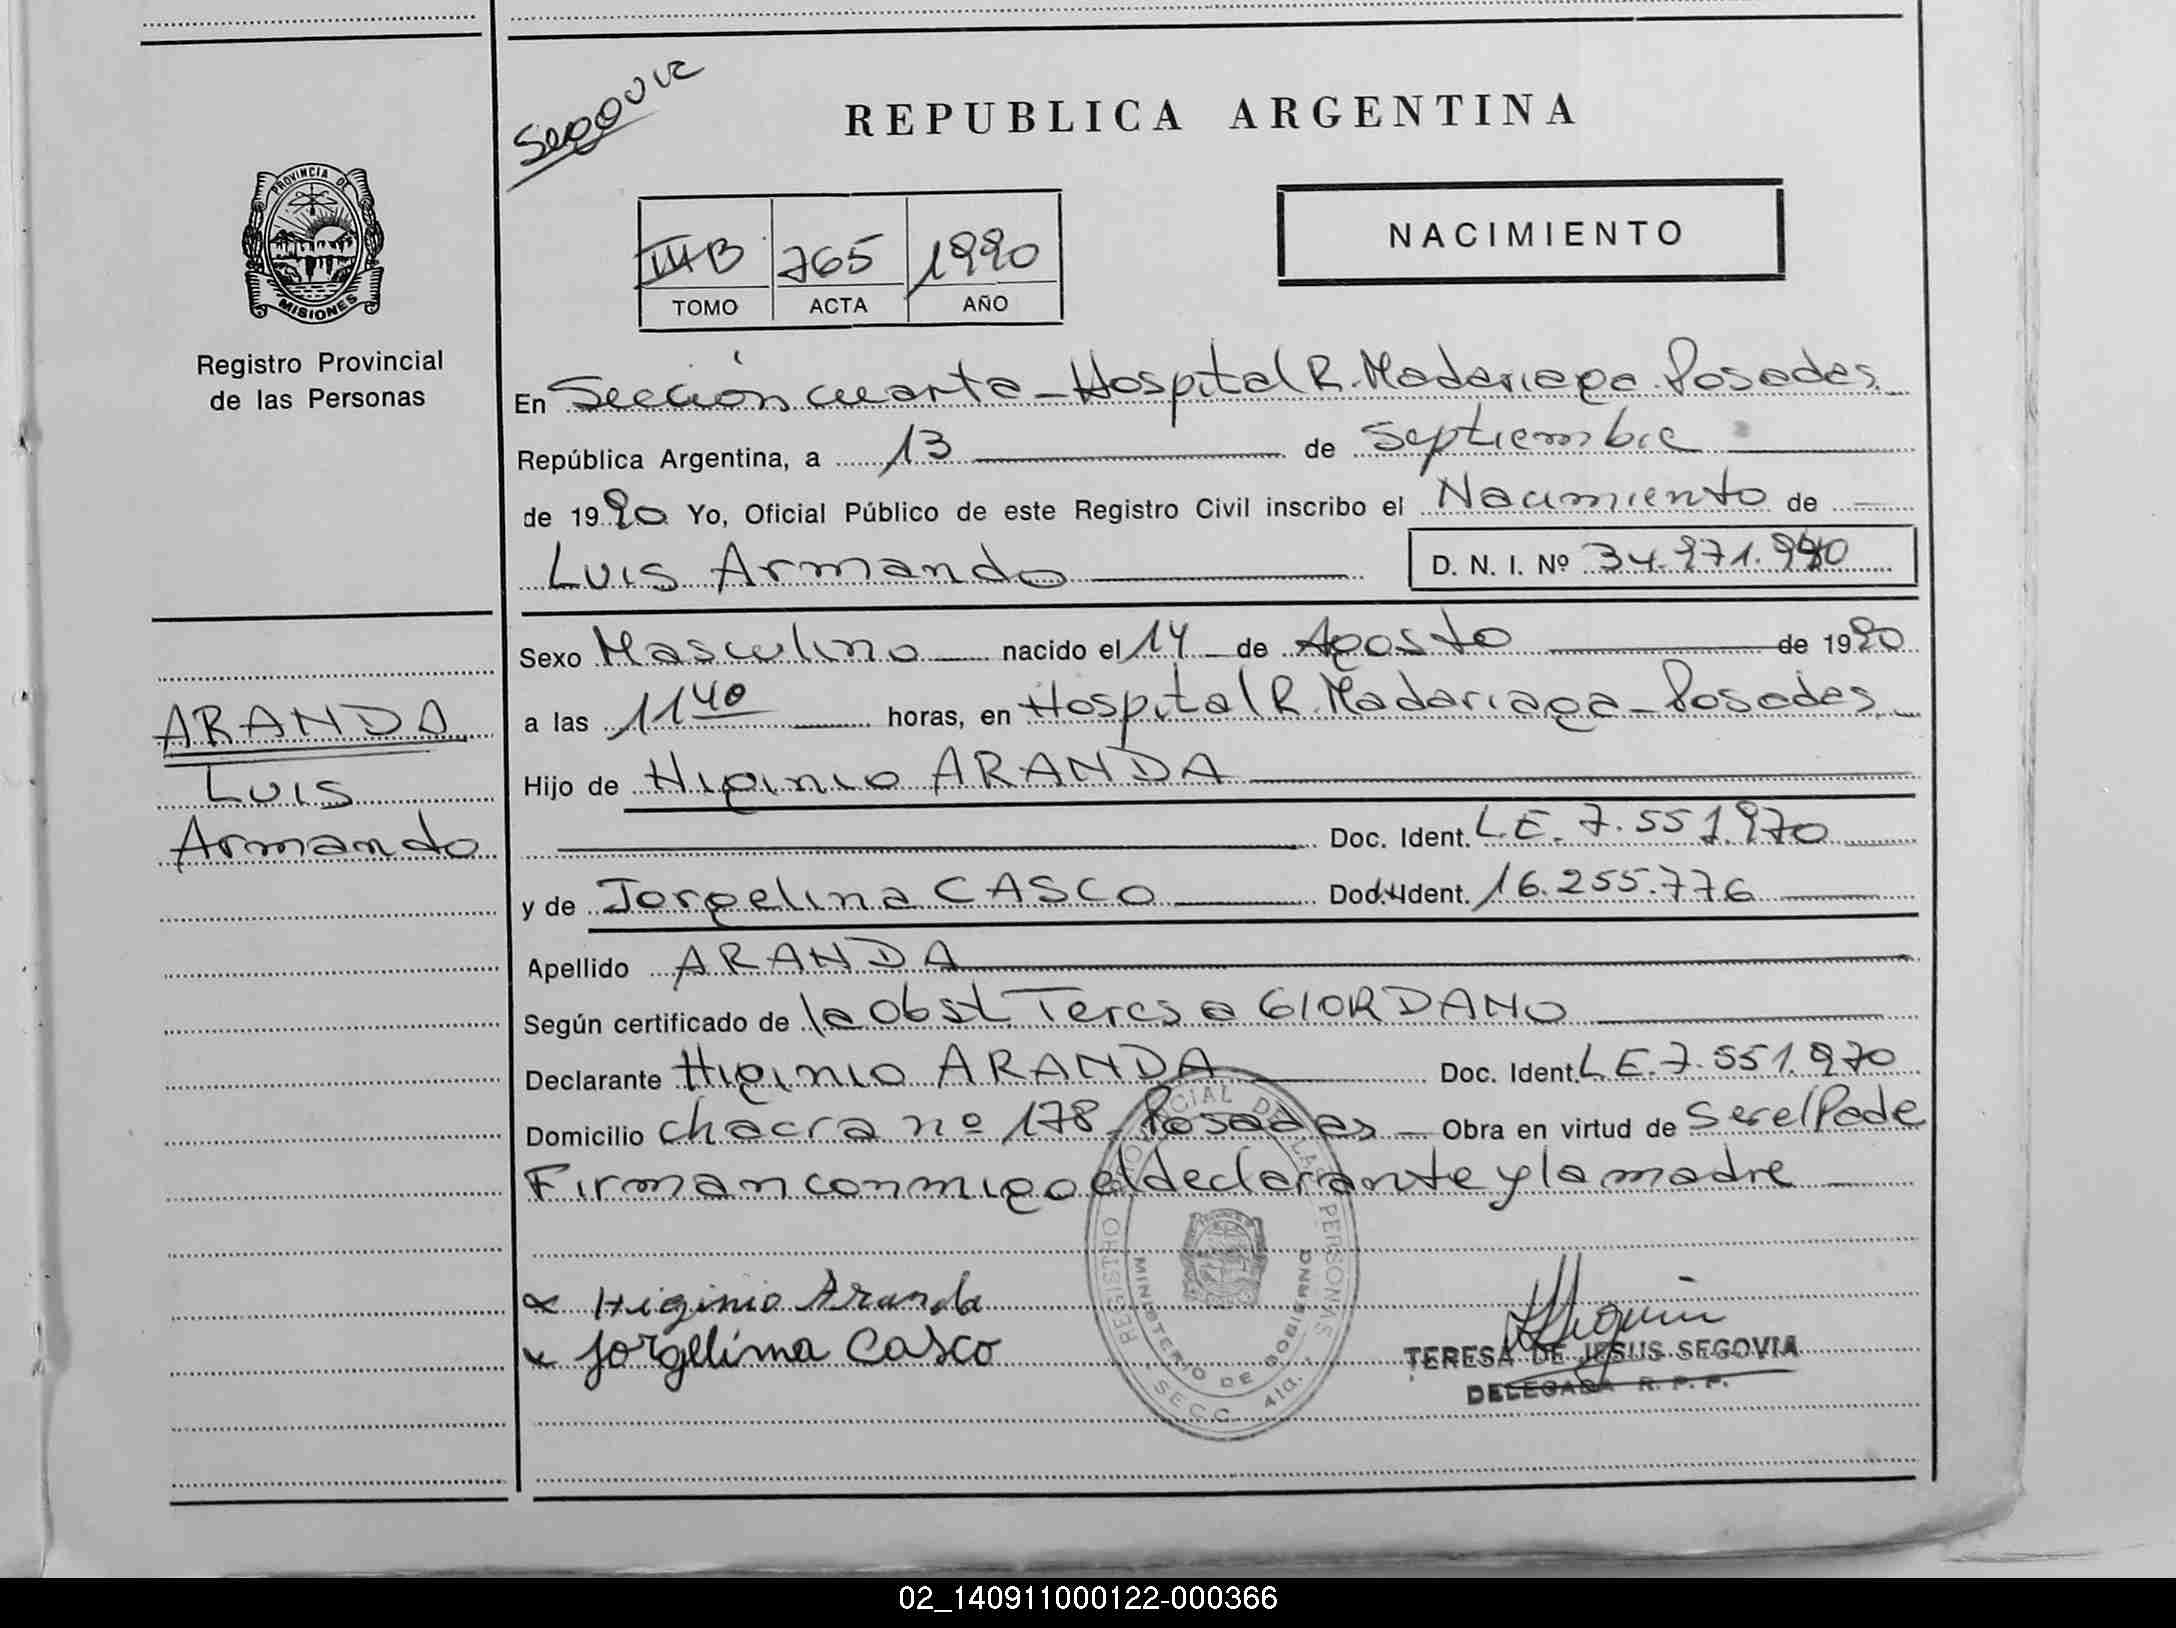 Segovia
REPUBLICA ARGENTINA
PROVINCIA DE
MISIONES
Registro Provincial
de las Personas
III B 765 1990
TOMO ACTA AÑO
NACIMIENTO
En Sección cuarta - Hospital R. Madariaga. Posadas
República Argentina, a 13 de Septiembre
de 1990 Yo, Oficial Público de este Registro Civil inscribo el Nacimiento de
Luis Armando D. N. I. Nº 34.971.990
ARANDA
Luis
Armando
Sexo Masculino nacido el 14 de Agosto de 1990
a las 11 40 horas, en Hospital R. Madariaga - Posadas
Hijo de Higinio ARANDA
Doc. Ident. L.E. 7.551.970
y de Jorgelina CASCO Doc. Ident. 16.255.776
Apellido ARANDA
Según certificado de la Obst. Teresa GIORDANO
Declarante Higinio ARANDA Doc. Ident. L.E. 7.551.970
Domicilio chacra nº 178 - Posadas - Obra en virtud de Ser el Pade
Firman conmigo el declarante y la madre
x Higinio Aranda
x Jorgelina Casco
REGISTRO PROVINCIAL DE LAS PERSONAS
MINISTERIO DE GOBIERNO
SECC. 4ta.
TERESA DE JESUS SEGOVIA
DELEGADA R. P. P.
02_140911000122-000366